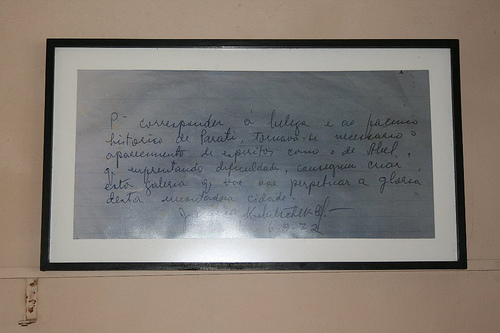 Pª corresponder à beleza e ao
historico de Parati, tornava-se necessario o
aparecimento de espiritos como o de Abel,
q. enfrentando dificuldades, conseguiu criar
esta galeria q. vae perpetuar a gloria
desta encantadora cidade.
Kubitschek
6.9.72